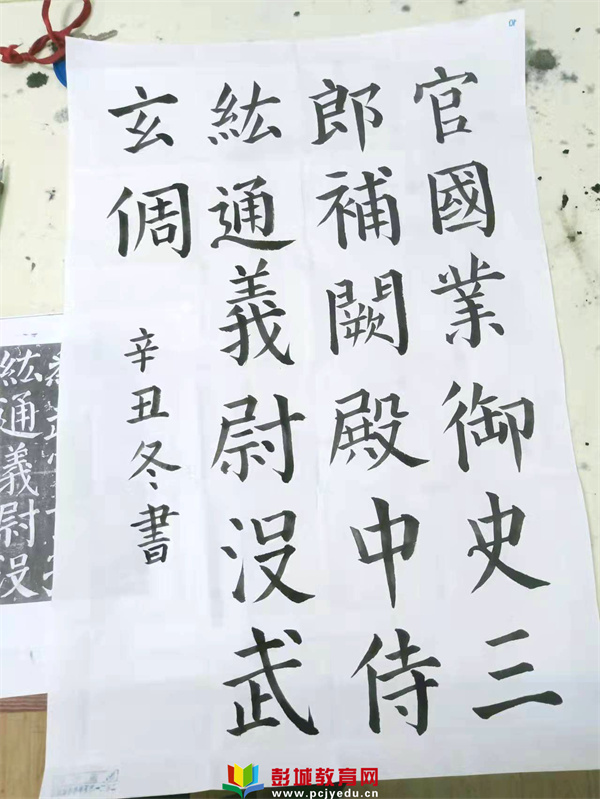 官國業御史三
郎補闕殿中侍
紘通義尉没武
玄倜
辛丑冬書
紘通義尉没
彭城教育网
www.pcjyedu.cn